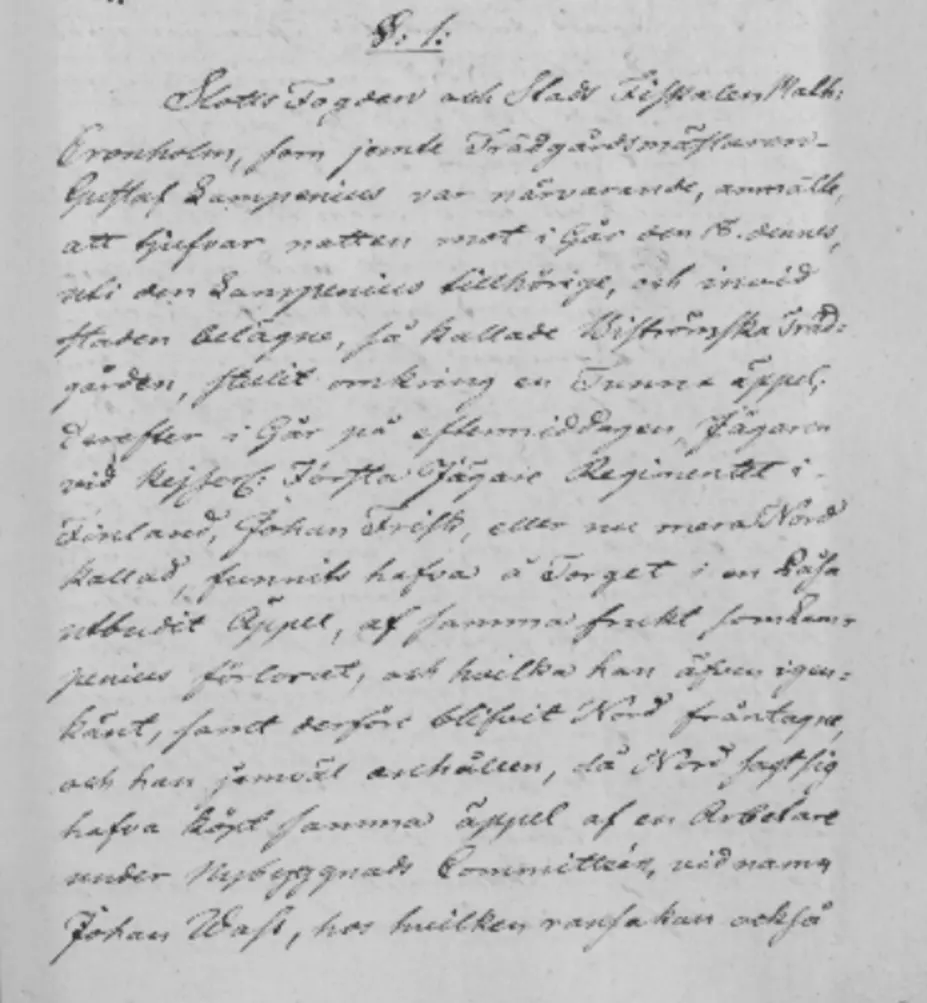 §: 1:
Slotts Fogden och Stads Fiskalen Math:
Cronholm, som jemte Trädgårdsmästaren
Gustaf Lampenius var närvarande, anmälte,
att tjufvar natten mot i Går den 15. dennes,
uti den Lampenius tillhörige, och invid
staden belägne, så kallade Wiströmska Träd=
gården, stulit omkring en Tunna äppel;
derefter i Går på eftermiddagen Jägaren
vid Kejserl: Första Jägare Regimentet i
Finland, Johan Frisk, eller nu mera Nord
kallad, funnits hafva å Torget i en Påsa
utbudit Äppel, af samma frukt som Lam=
penius förlorat, och hvilka han äfven igen=
känt, samt derföre blifvit Nord fråntagne,
och han jemväl anhållen, då Nord sagt sig
hafva köpt samma äppel af en Arbetare
under Nybyggnads Committéen, vid namn
Johan Wass, hos hvilken ransakan också